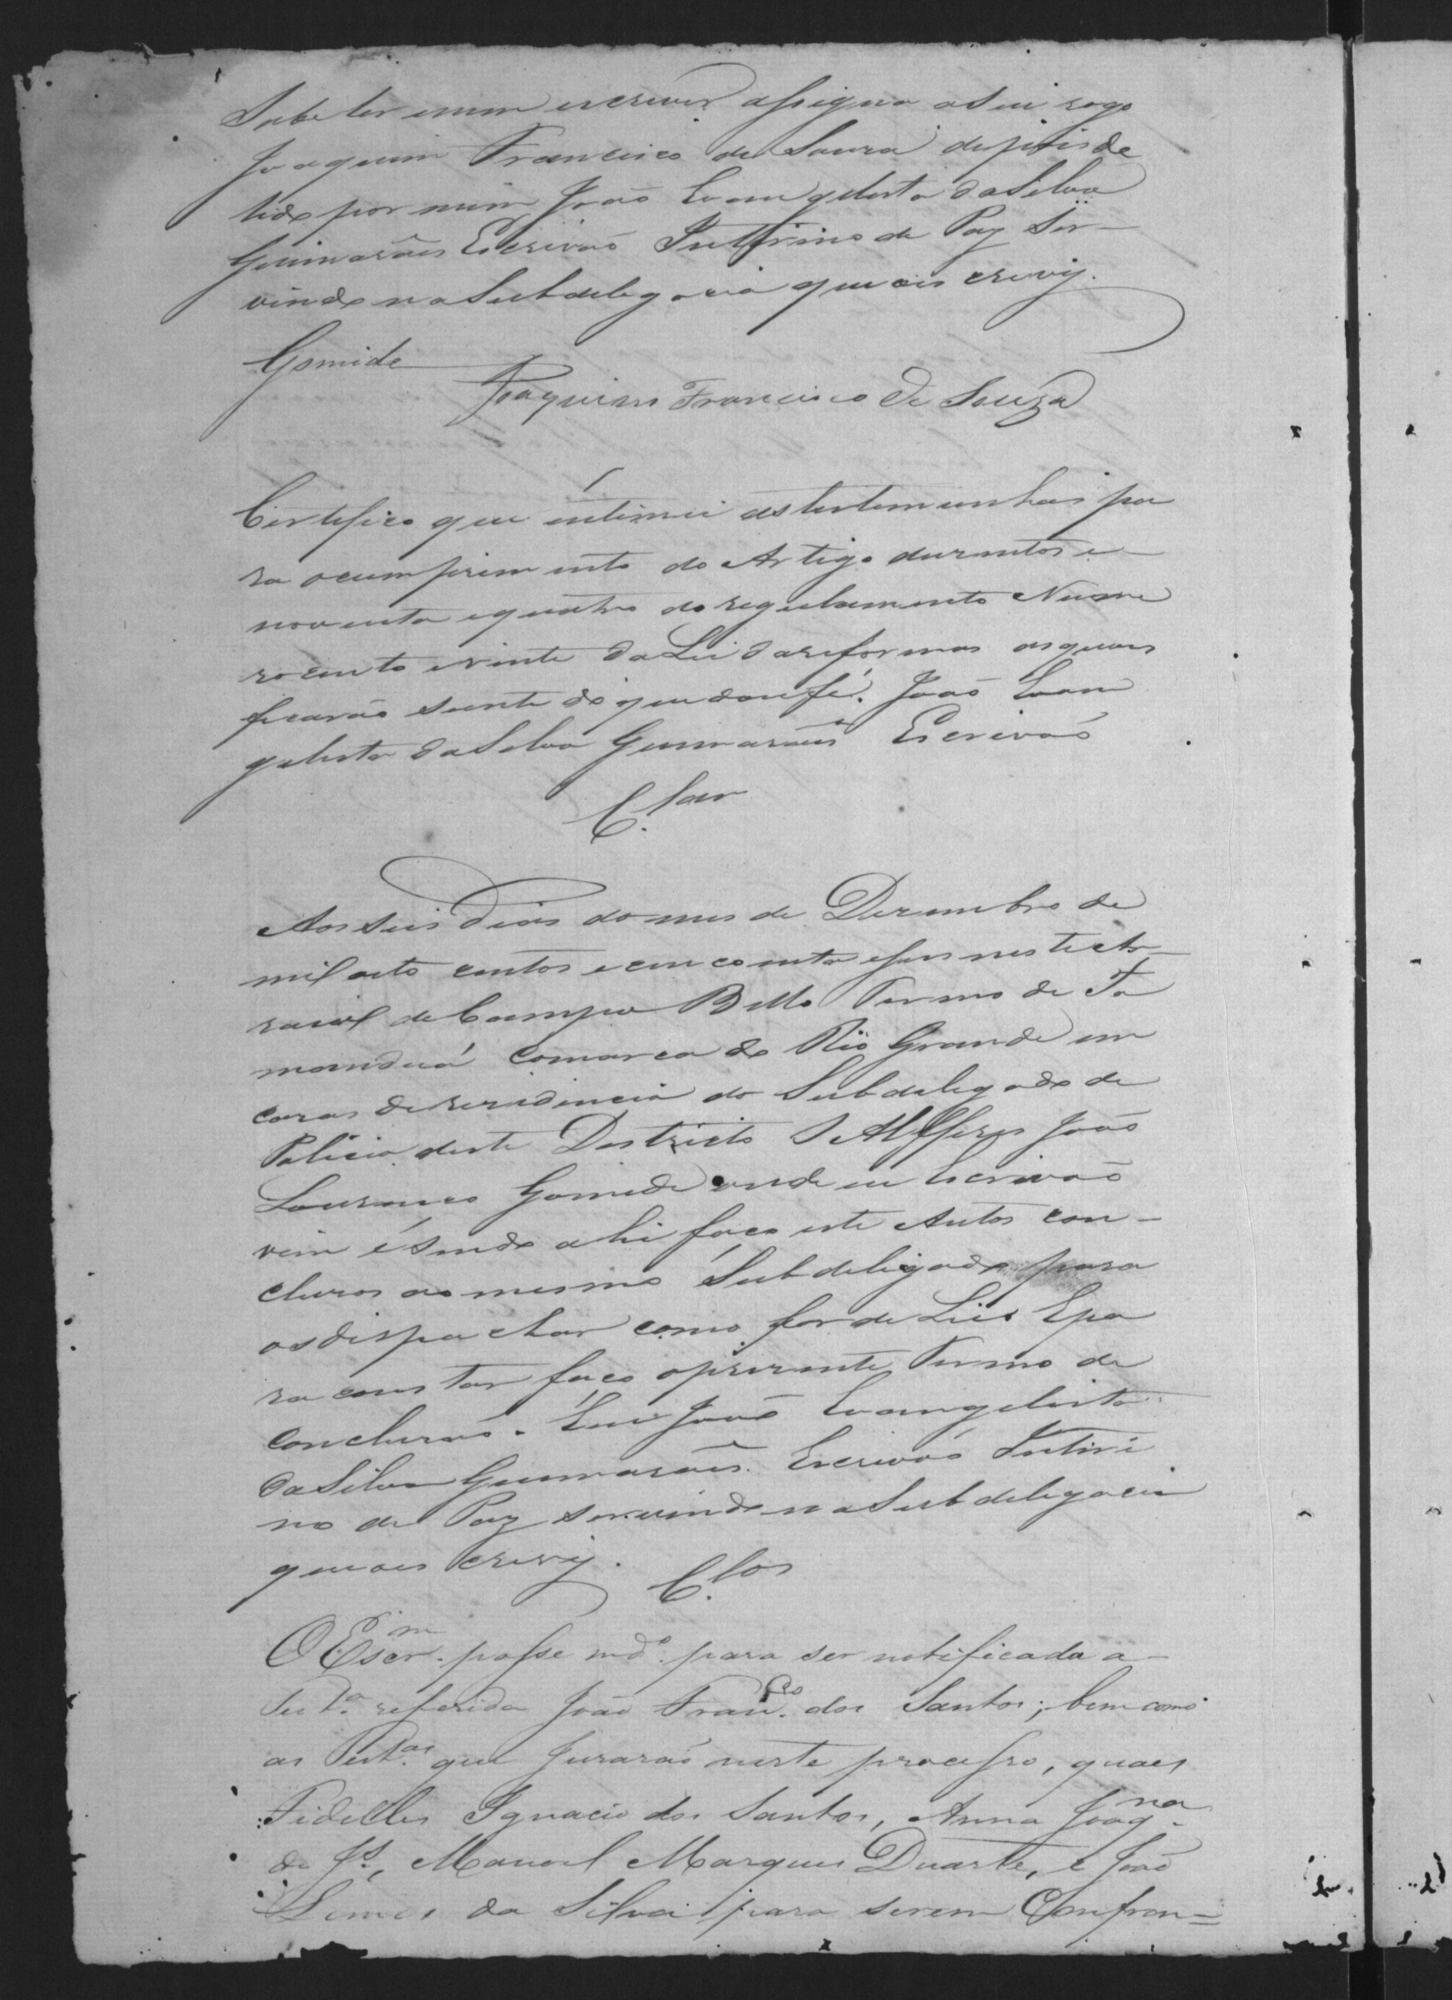 Sabe ler e nem escrever assigna a seu rogo
Joaquim Francisco de Souza depois de
lido por mim João Evangelista da Silva
Guimarães Escrivão Intirino de Paz Ser-
vindo na Subdelegacia que ois crevy.
Gomide
Joaquim Francisco de Souza
Certifico que intimei as testemunhas pa
ra o cumprimento do Artigo duzentos e
noventa e quatro do regulamento Nume
ro cento e vinte da Lei da reformas as quais
ficarão siente do que dou fé. João Evan
gelista da Silva Guimarães Escrivão
C.lam
Aos seis dias do mes de Dezembro de
mil oito centos e cincoenta neste Ar-
raial de Campo Bello Termo de Ta
manduá Comarca do Rio Grande em
casas de rezidencia do Subdelegado de
Policia deste Districto o Alferes João
Lourenco Gomide onde eu Escrivão
vim é sendo ahi faco este Autos con-
cluzos ao mesmo Subdeligado para
os dispachar como for de Lei E pa
ra constar faço o prezente Termo de
concluzaõ. Eu João Evangelista
da Silva Guimarães Escrivão Intiri
no de Paz servindo na Subdelegacia
que ois crevy.
C.los
O Escr.m passe md.o para ser notificada a
test.a referida João Fran.co dos Santos; bem como
as Test.as que jurarão neste processo, quaes
Fidelles Ignacio dos Santos, Anna Joaq.na
de J.s, Manoel Marques Duarte, e João
Lemes da Silva para serem Confron=